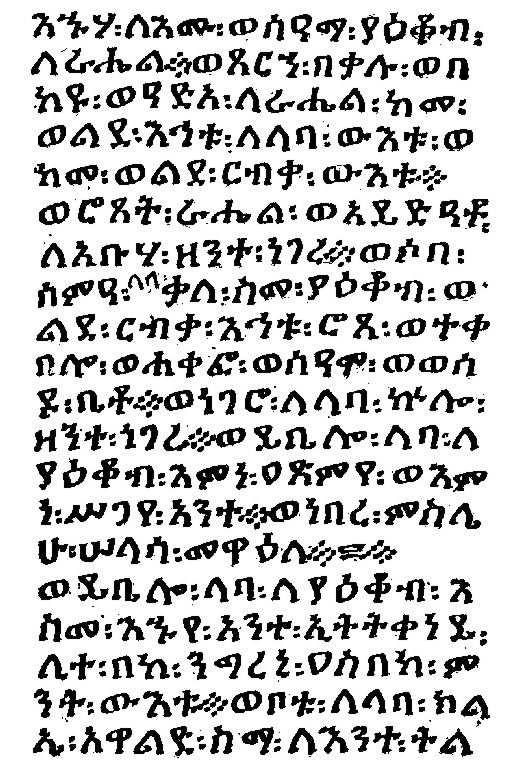 እኁሃ፡ለእሙ፡ወሰዓማ፡ያዕቆብ፡
ለራሔል፨ወጸርኀ፡በቃሉ፡ወበ
ከየ፡ወዓድአ፡ለራሔል፡ከመ፡
ወልደ፡እኅቱ፡ለላባ፡ውእቱ፡ወ
ከመ፡ወልደ፡ርብቃ፡ውእቱ፨
ወሮጸት፡ራሔል፡ወአይድዓቶ፡
ለአቡሃ፡ዘንተ፡ነገረ፨ወሶበ፡
ሰምዓ፡ላባ ቃለ፡ስመ፡ያዕቆብ፡ወ
ልደ፡ርብቃ፡እኅቱ፡ሮጸ፡ወተቀ
በሎ፡ወሐቀፎ፡ወሰዓሞ፡ወወሰ
ዶ፡ቤቶ፨ወነገሮ፡ለላባ፡ኵሎ፡
ዘንተ፡ነገረ፨ወይቤሎ፡ላባ፡ለ
ያዕቆብ፡እምነ፡ዐጽምየ፡ወእም
ነ፡ሥጋየ፡አንተ፨ወነበረ፡ምስሌ
ሁ፡ሠላሳ፡መዋዕለ፨
ወይቤሎ፡ላባ፡ለያዕቆብ፡እ
ስመ፡እኁየ፡አንተ፡ኢትትቀነይ፡
ሊተ፡በከ፡ንግረኒ፡ዐስበከ፡ም
ንት፡ውእቱ፨ወቦቱ፡ለላባ፡ክል
ኤ፡አዋልድ፡ስማ፡ለእንተ፡ትል